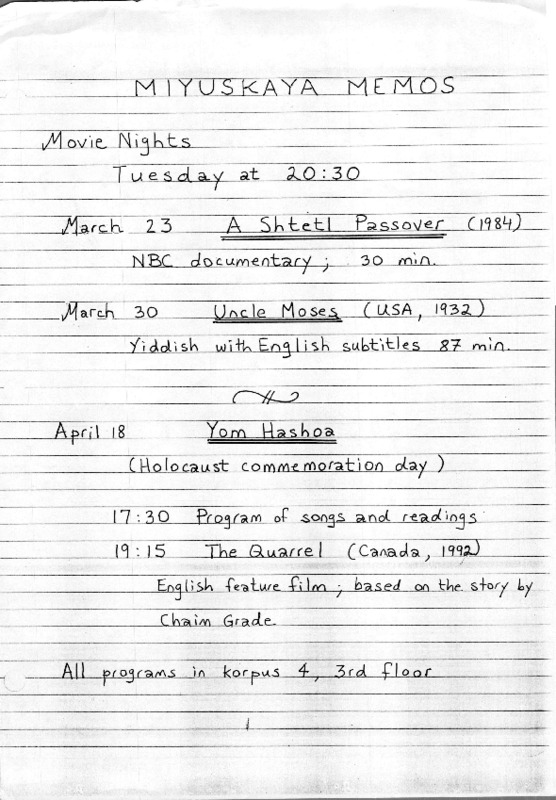 MIYUSKAYA MEMOS
Movie Nights
Tuesday at 20:30
March 23 A Shtetl Passover (1984)
NBC documentary; 30 min.
March 30 Uncle Moses (USA, 1932)
Yiddish with English subtitles 87 min.
April 18 Yom Hashoa
(Holocaust commemoration day)
17:30 Program of songs and readings
19:15 The Quarrel (Canada, 1992)
English feature film; based on the story by
Chaim Grade.
All programs in korpus 4, 3rd floor
1